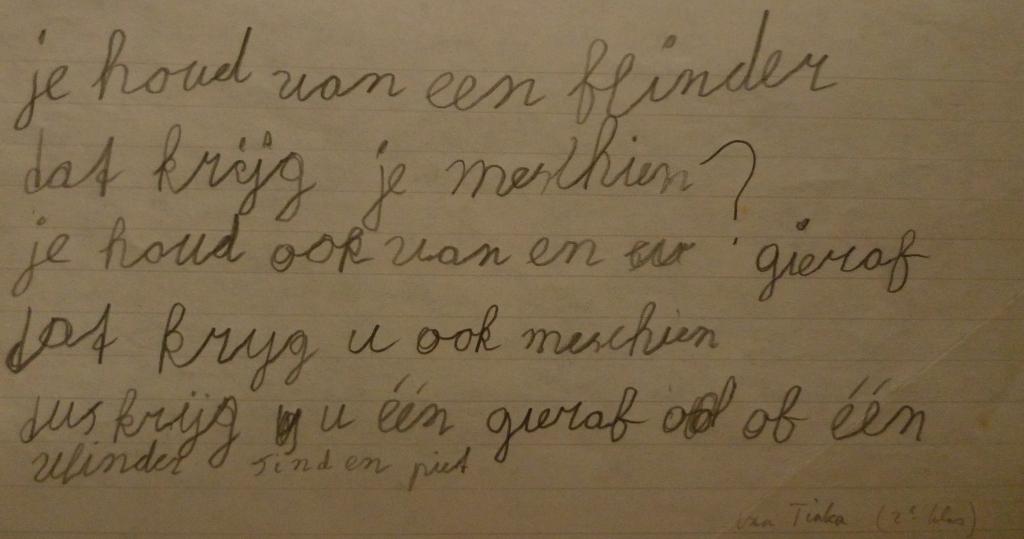 je houd van een flinder
dat krijg je meschien?
je houd ook van en gieraf
dat kryg u ook meschien
dus krijg u één gieraf of één
vlinder sind en piet
van Tinka (2e klas)